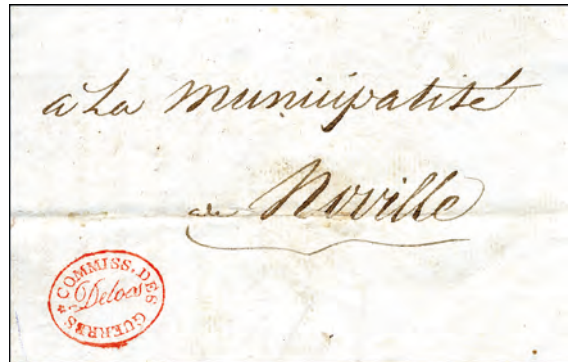 a La Municipalité
de Noville
COMMISS. DES GUERRES
Deloes